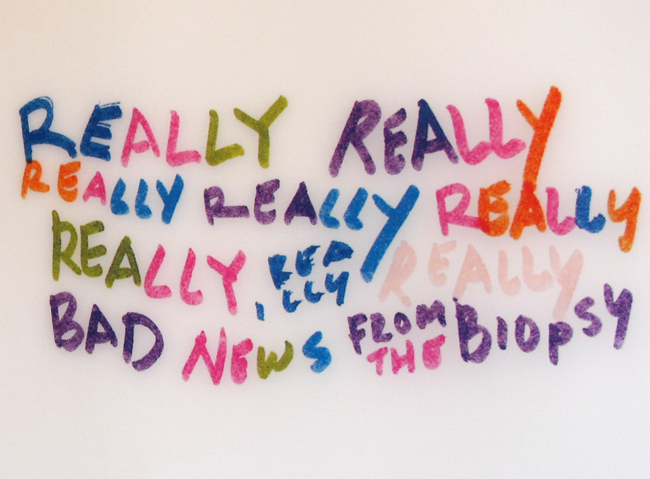 REALLY REALLY
REALLY REALLY REALLY
REALLY REALLY REALLY
BAD NEWS FROM THE BIOPSY